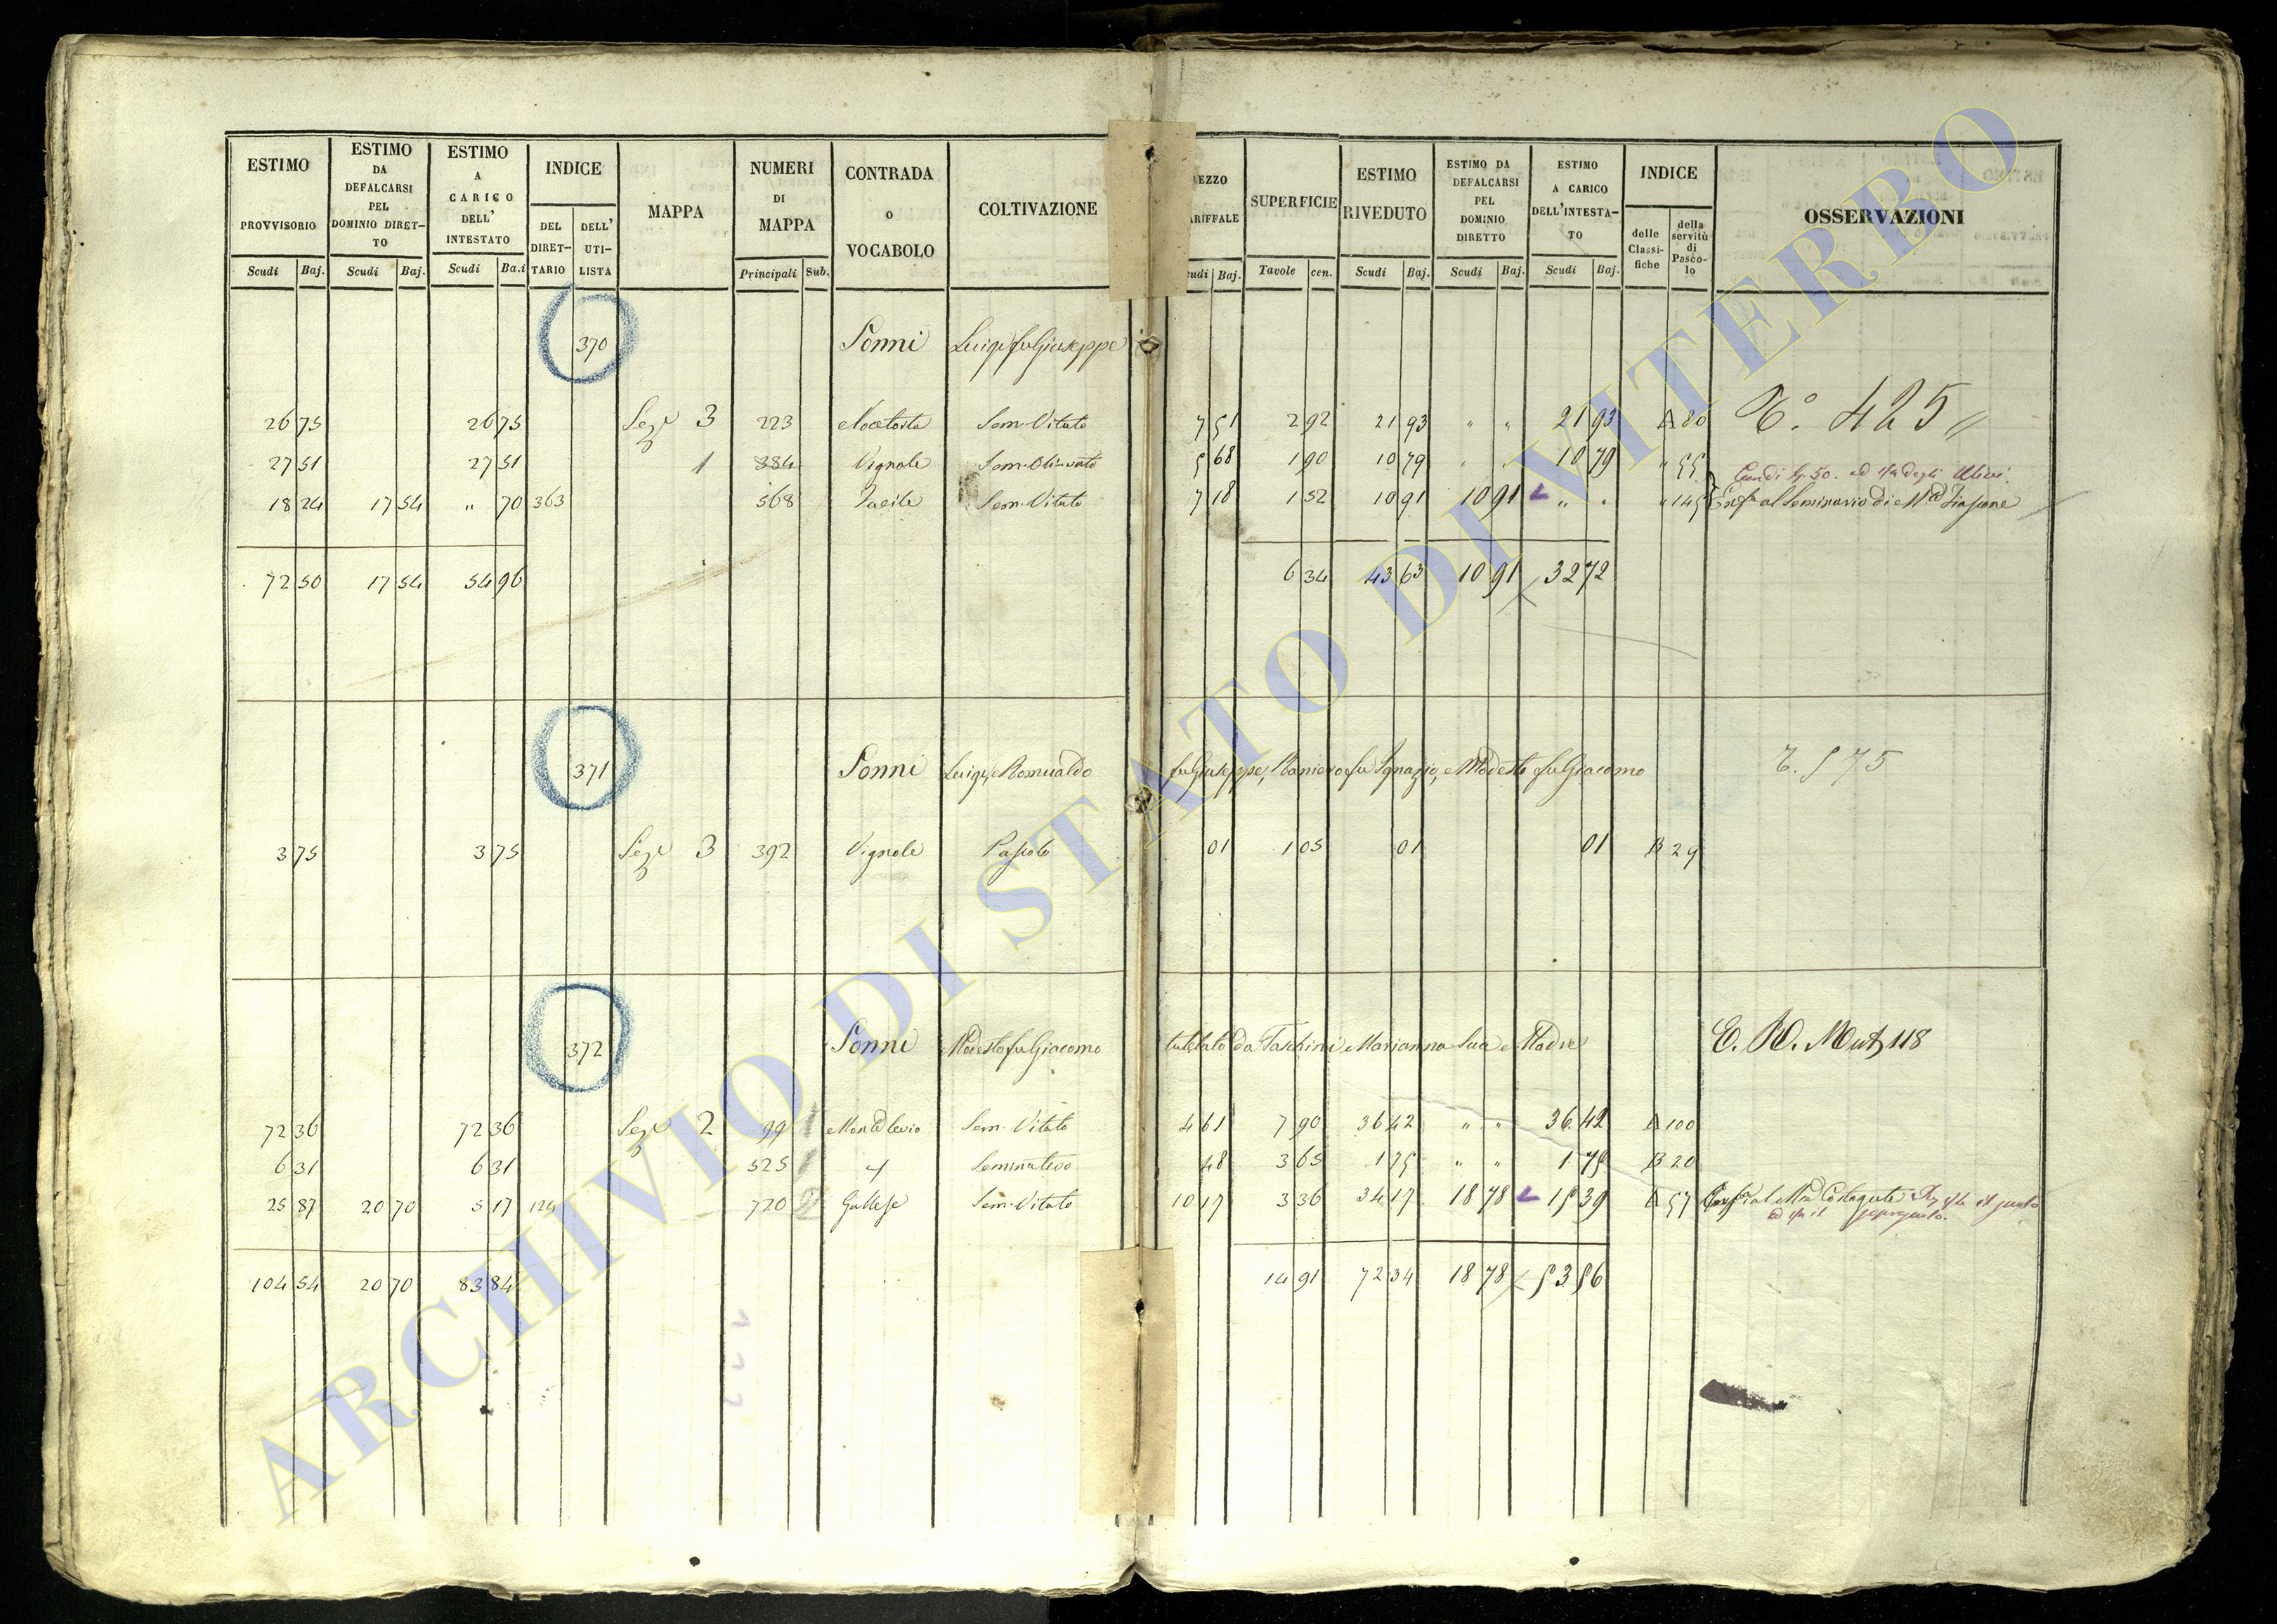 ESTIMO PROVVISORIO Scudi Baj.
ESTIMO DA DEFALCARSI PEL DOMINIO DIRETTO Scudi Baj.
ESTIMO A CARICO DELL' INTESTATO Scudi Ba.i
INDICE DEL DIRETTARIO DELL' UTILISTA
MAPPA
NUMERI DI MAPPA Principali Sub.
CONTRADA o VOCABOLO
COLTIVAZIONE
SUPERFICIE Tavole cen.
ESTIMO RIVEDUTO Scudi Baj.
ESTIMO DA DEFALCARSI PEL DOMINIO DIRETTO Scudi Baj.
ESTIMO A CARICO DELL'INTESTATO Scudi Baj.
INDICE delle Classifiche della servitù di Pascolo
OSSERVAZIONI
370 Sonni Luigi fu Giuseppe
26 75 26 75 Sez.e 3 223 Sem. Vitato 7 51 2 92 21 93 " " 21 93 A 80 N.° 425 "
27 51 27 51 1 384 Vignole Sem. Olivato 5 68 1 90 10 79 10 79 " 55
18 24 17 54 " 70 363 568 Sem. Vitato 7 18 1 52 10 91 10 91 " " 145 al Seminario di M.te Fiascone
72 50 17 54 54 96 6 34 43 63 10 91 32 72
371 Sonni Luigi, e Romualdo fu Giuseppe, Raniero fu Ignazio, e Modesto fu Giacomo 575
3 75 3 75 Sez.e 3 392 Vignole Pascolo 01 1 05 01 01 B 29
372 Sonni Modesto fu Giacomo tutelato da Taschini Marianna Sua Madre E. R. Mut. 118
72 36 72 36 Sez.e 2 99 Sem. Vitato 4 61 7 90 36 42 " " 36 42 A 100
6 31 6 31 525 Seminativo 48 3 65 1 75 " " 1 75 B 20
25 87 20 70 5 17 124 720 Gallese Sem. Vitato 10 17 3 36 34 17 18 78 15 39 A 57
104 54 20 70 83 84 14 91 72 34 18 78 53 56
ARCHIVIO DI STATO DI VITERBO